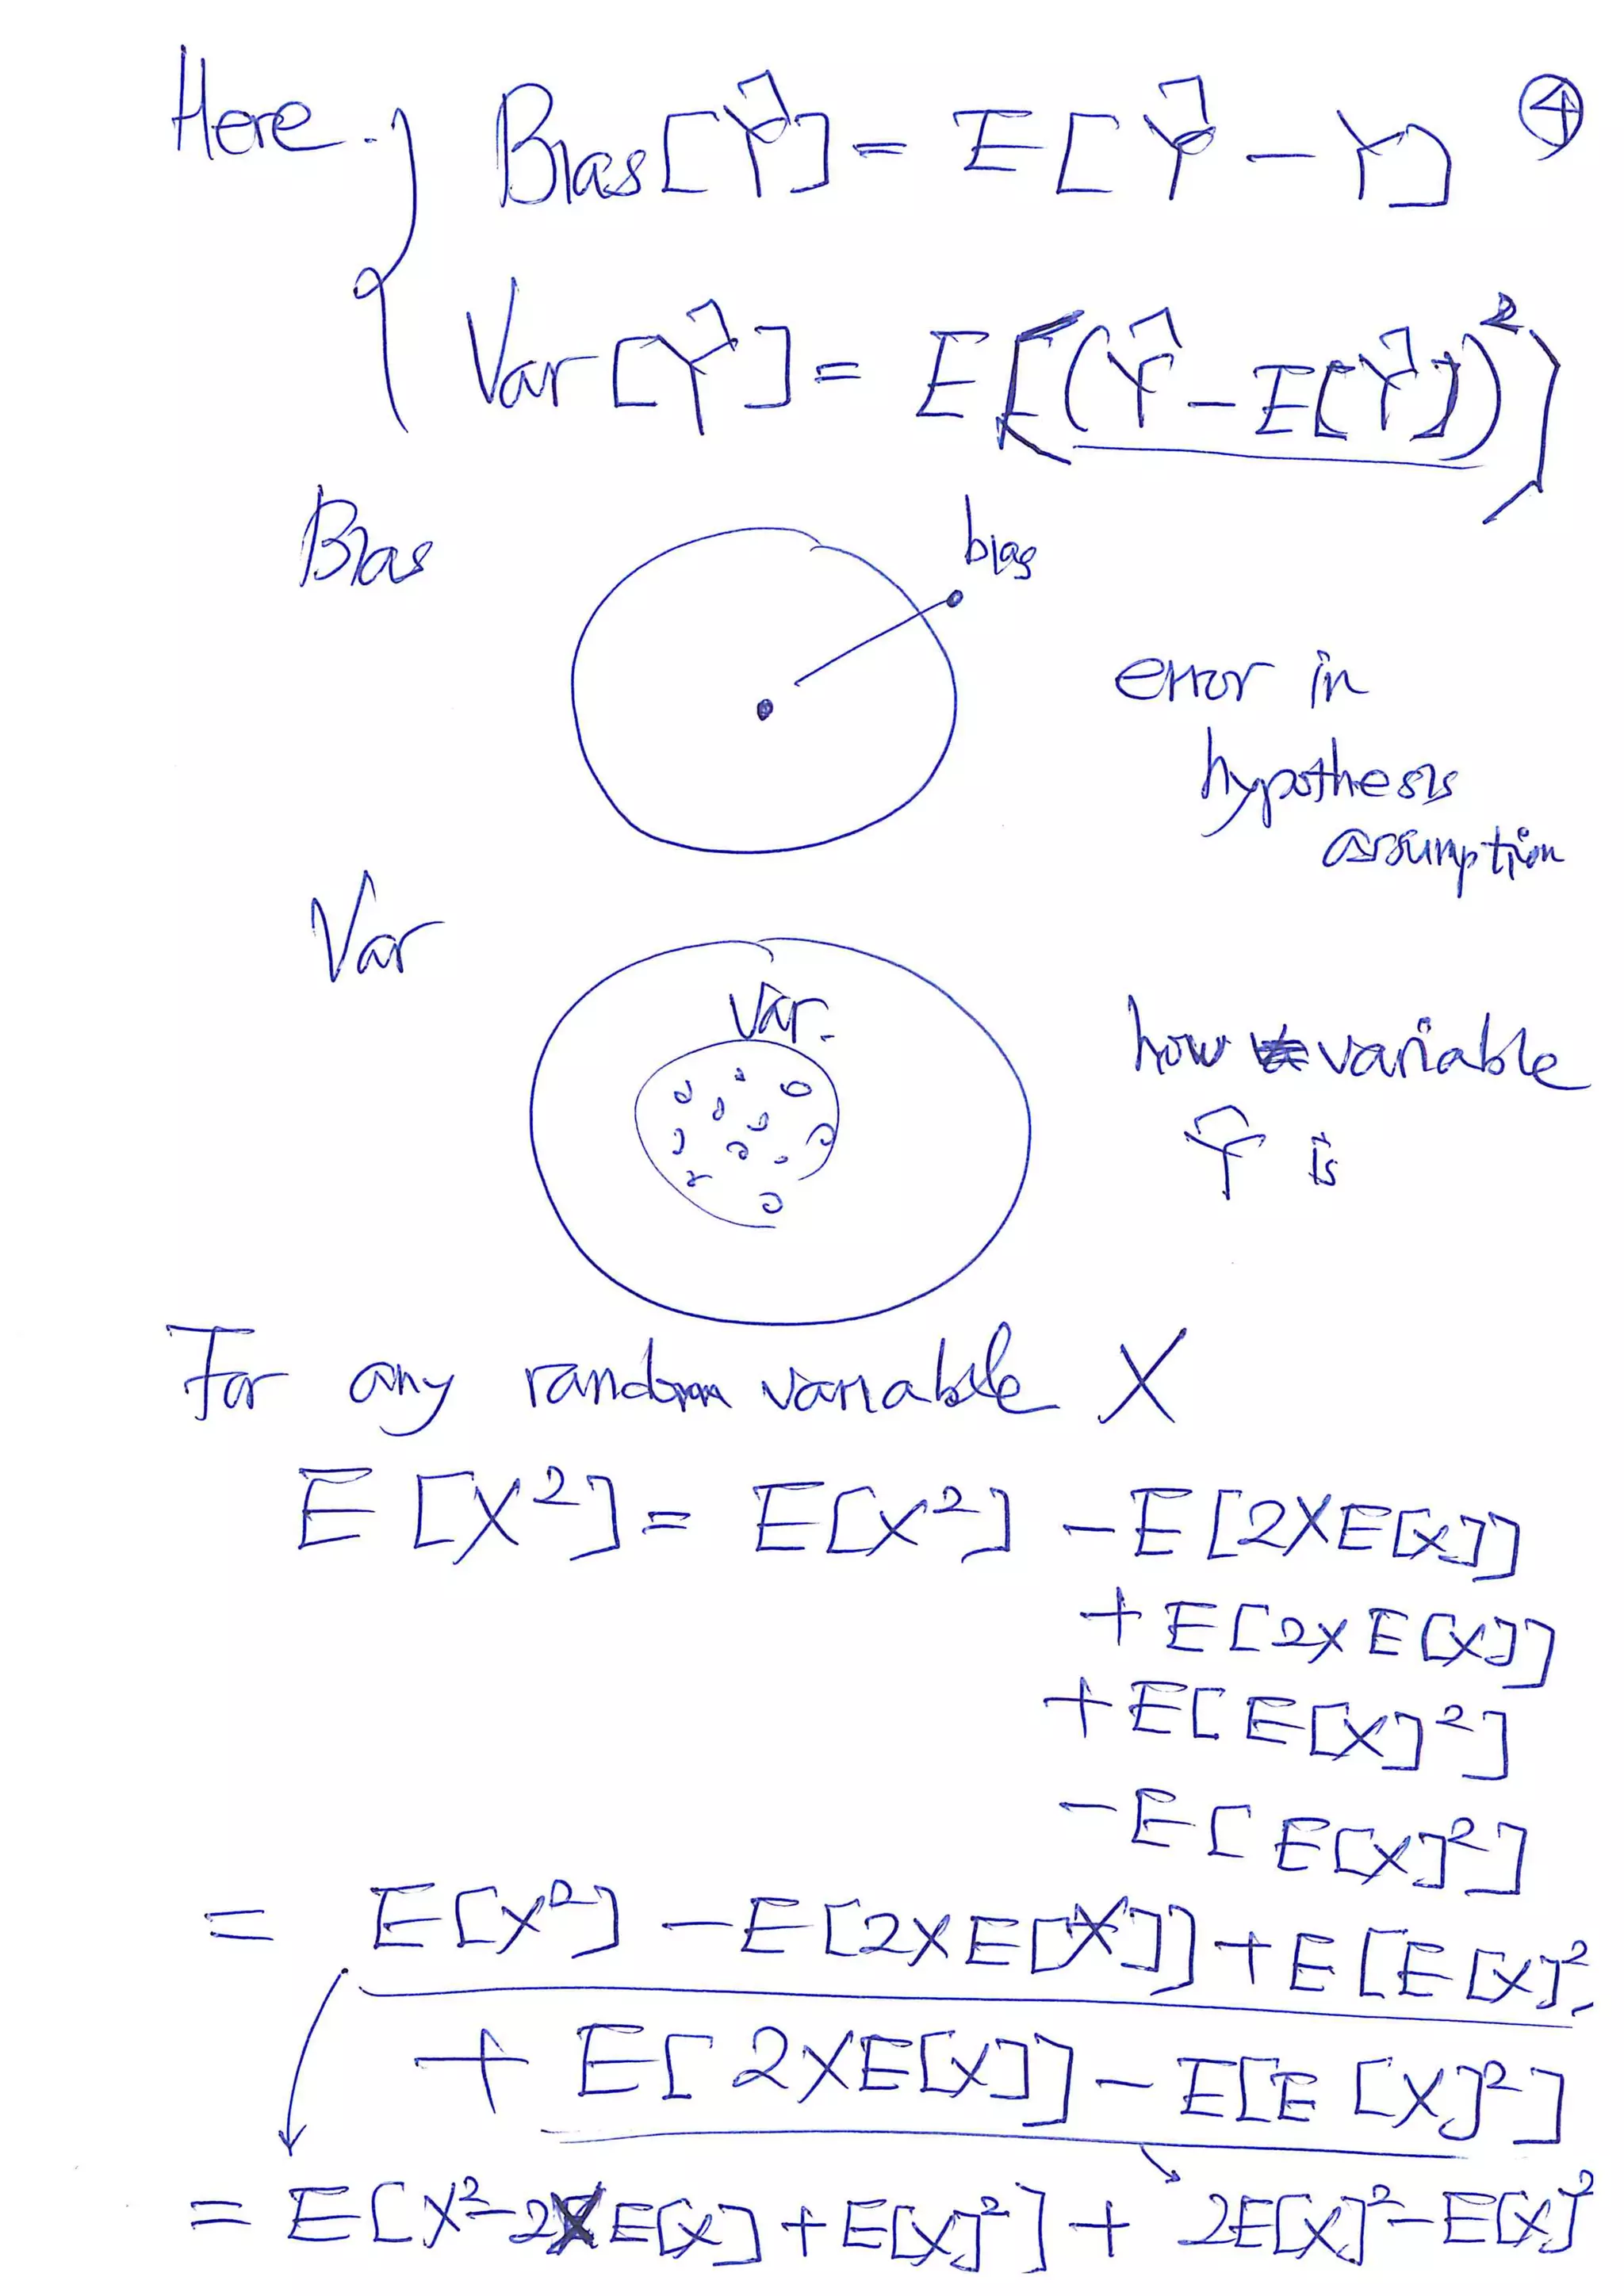 Here. Bias[Ŷ] = E[Ŷ - Y] ④
Var[Ŷ] = E[(Ŷ - E[Ŷ])²]
Bias
bias
error in
hypothesis
assumption
Var
Var.
how variable
Ŷ is
For any random variable X
E[X²] = E[X²] - E[2XE[X]]
+ E[2XE[X]]
+ E[E[X]²]
- E[E[X]²]
= E[X²] - E[2XE[X]] + E[E[X]²
+ E[2XE[X]] - E[E[X]²]
= E[X² - 2XE[X] + E[X]²] + 2E[X]² - E[X]²